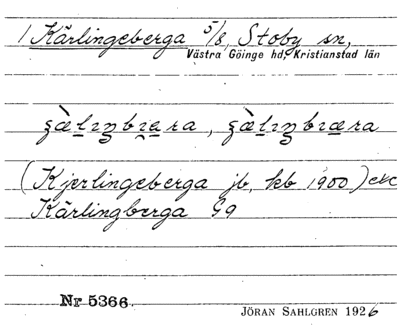 1 Kärlingeberga 5/8, Stoby sn,
Västra Göinge hd, Kristianstad län
(Kjerlingeberga jb, kb 1900) etc
Kärlingberga G9
Nr 5366
JÖRAN SAHLGREN 1926